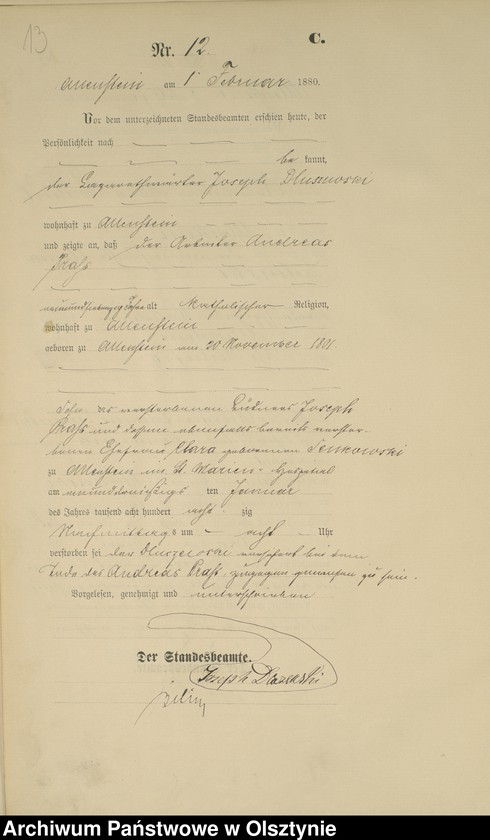 13
C.
Nr. 12.
Allenstein am 1. Februar 1880.
Vor dem unterzeichneten Standesbeamten erschien heute, der
Persönlichkeit nach
be kannt,
der Lazarethwärter Joseph
wohnhaft zu Allenstein
und zeigte an, daß der Arbeiter Andreas
neunundsiebenzig Jahre alt Katholischer Religion,
wohnhaft zu Allenstein
geboren zu Allenstein am 20 November
Sohn des verstorbenen Joseph
und dessen ebenfalls bereits verstor-
benen Ehefrau Clara geborenen
zu Allenstein im St. Marien-Hospital
am ten Januar
des Jahres tausend acht hundert acht zig
Nachmittags um acht Uhr
verstorben sei der bei dem
Tode des Andreas zugegen gewesen zu sein.
Vorgelesen, genehmigt und unterschrieben
Der Standesbeamte.
Joseph
Archiwum Państwowe w Olsztynie